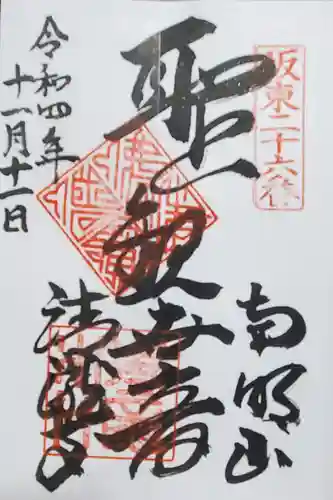 坂東二十六番
南明山
聖観世音
清瀧寺
令和四年
十一月十一日